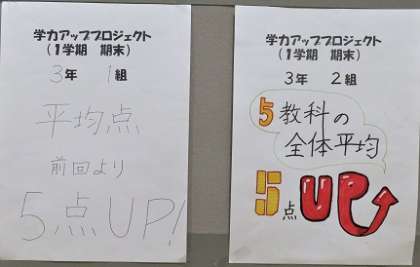 学力アッププロジェクト
(1学期　期末)
3年　1組
平均点
前回より
5点UP!
学力アッププロジェクト
(1学期　期末)
3年　2組
5教科の
全体平均
5点UP